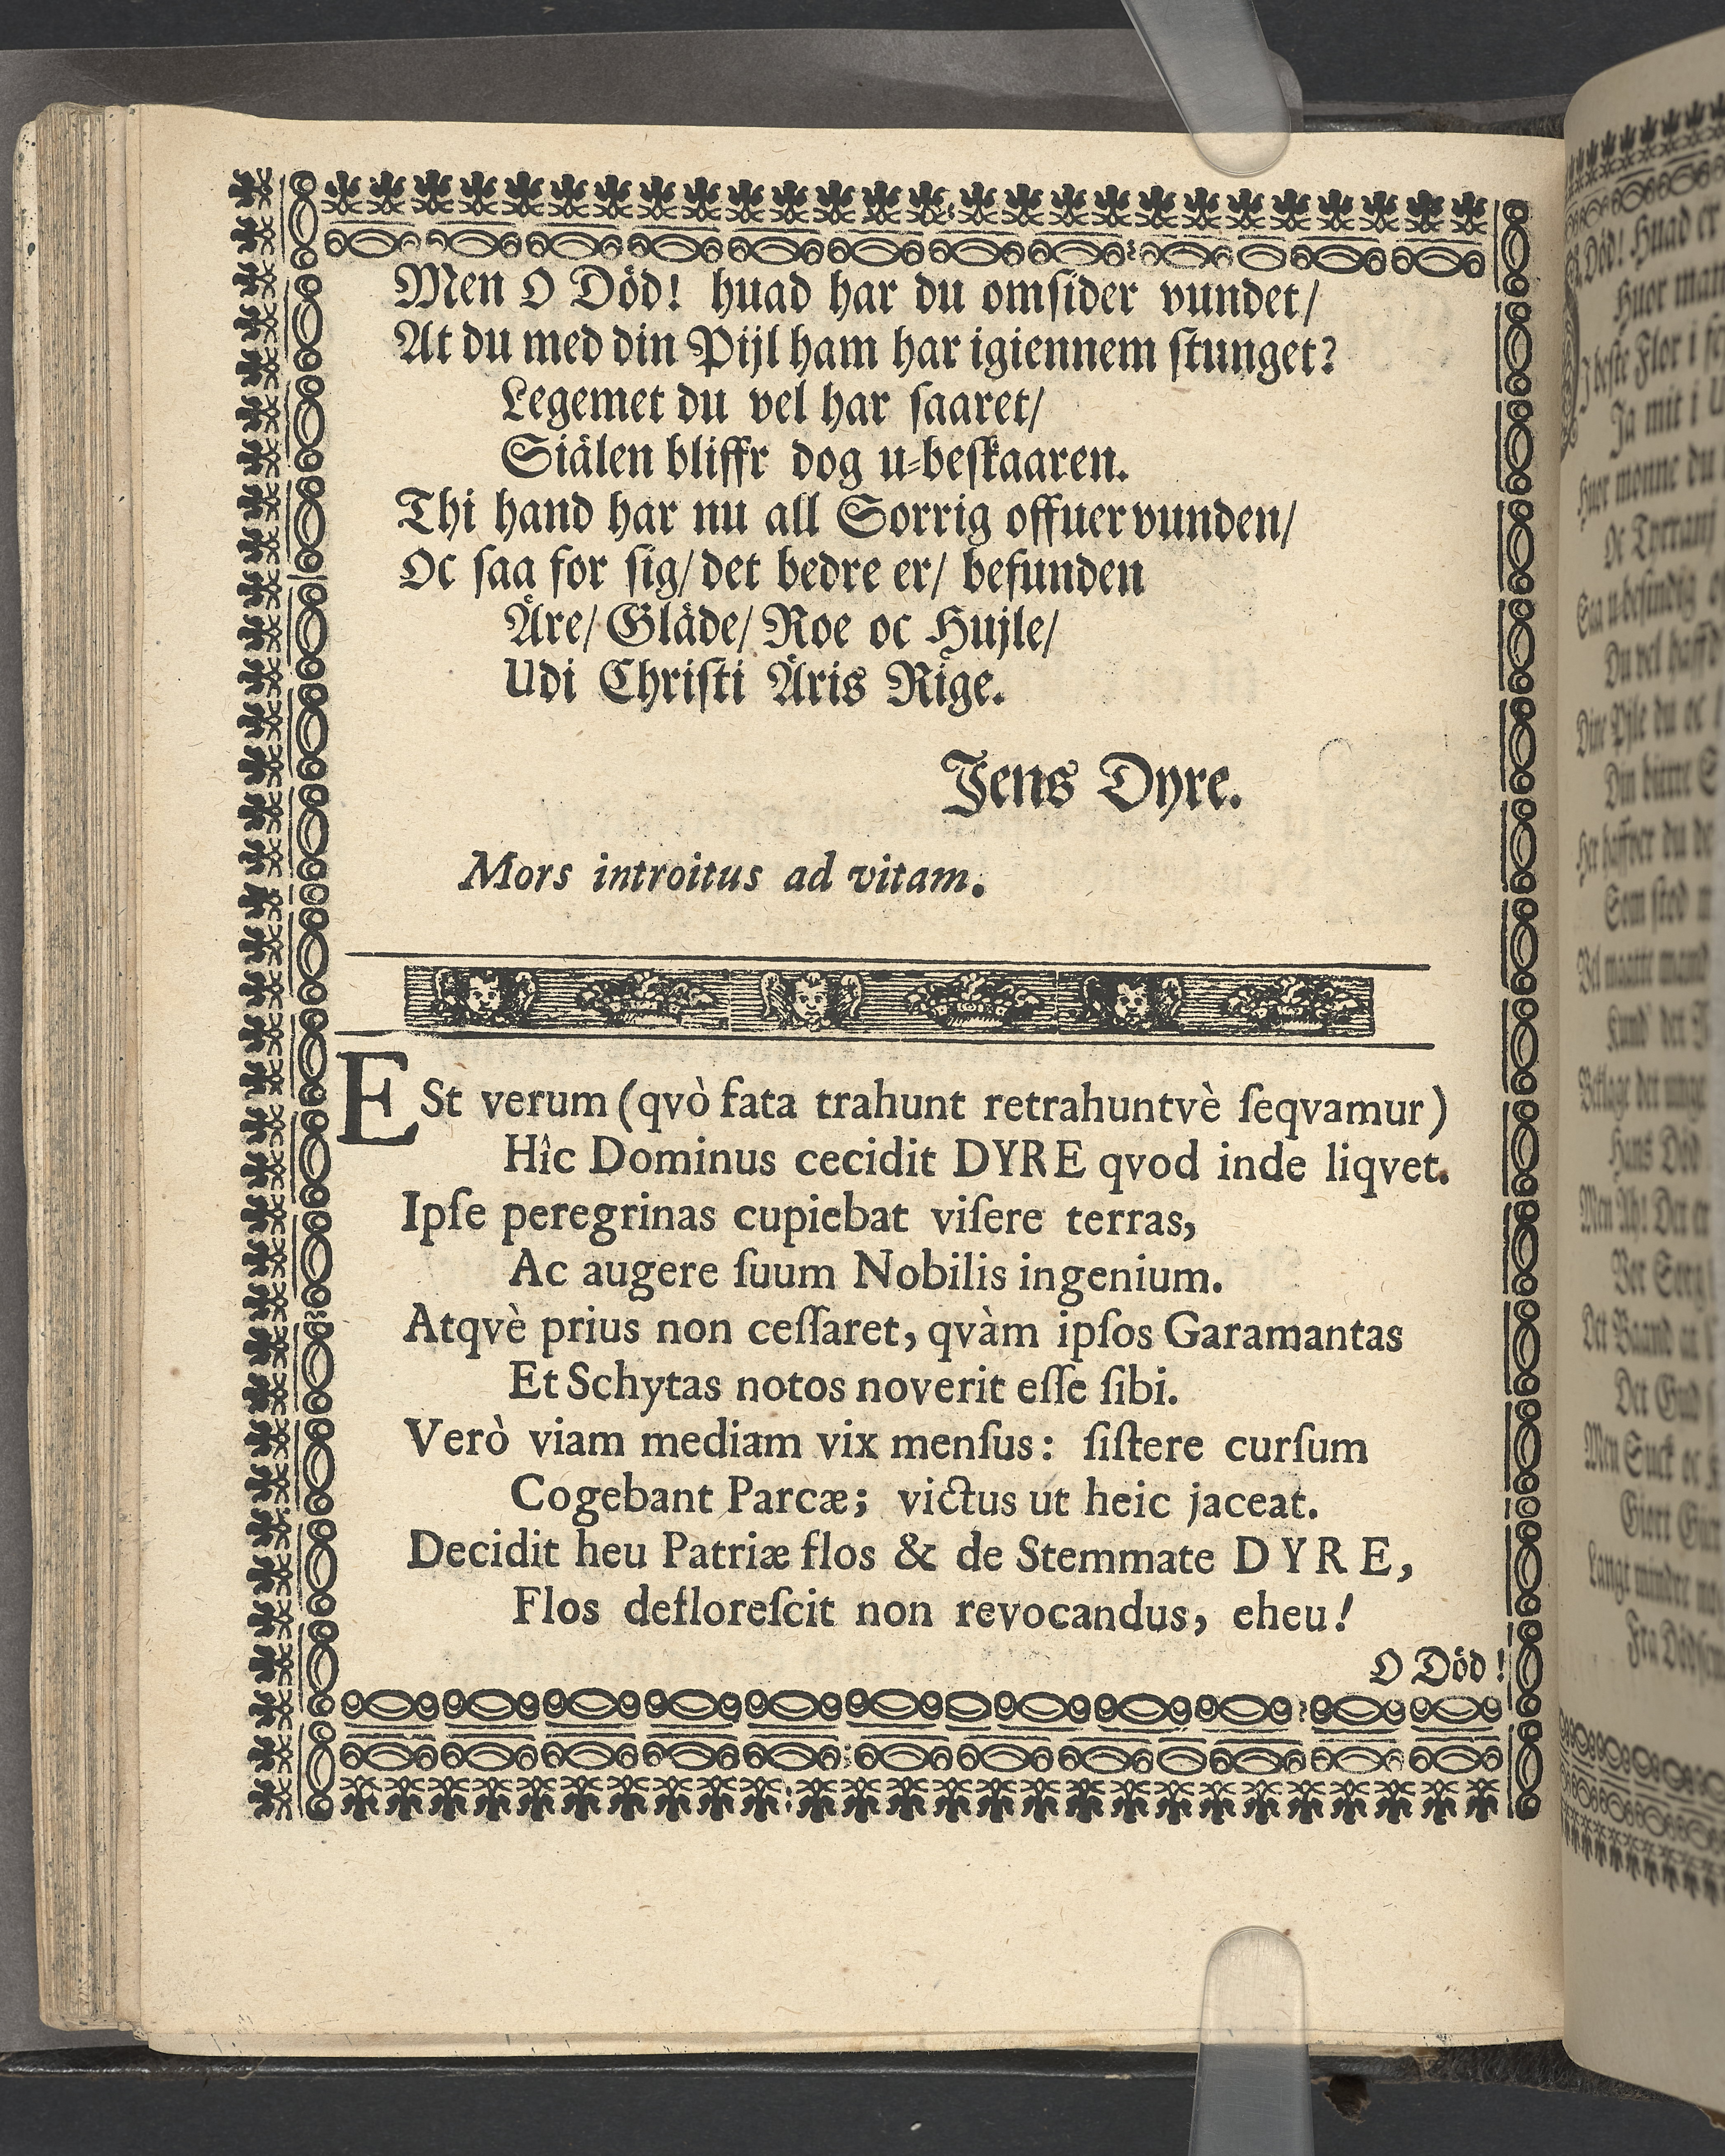 Men O Död! huad har du omsider vundet/
At du med din Pijl ham har igiennem stunget?
Legemet du vel har saaret/
Siälen bliffr dog u-beskaaren.
Thi hand har nu all Sorrig offuervunden/
Oc saa for sig/ det bedre er/ befunden
Äre/ Gläde/ Roe oc Hujle/
Udi Christi Äris Rige.
Jens Dyre.
Mors introitus ad vitam.
ESt verum (qvò fata trahunt retrahuntvè ſeqvamur)
Hîc Dominus cecidit DYRE qvod inde liqvet.
Ipſe peregrinas cupiebat viſere terras,
Ac augere ſuum Nobilis ingenium.
Atqvè prius non ceſſaret, qvàm ipſos Garamantas
Et Schytas notos noverit eſſe ſibi.
Verò viam mediam vix menſus: ſiſtere curſum
Cogebant Parcæ; victus ut heic jaceat.
Decidit heu Patriæ flos & de Stemmate DYRE,
Flos defloreſcit non revocandus, eheu!
O Död!
Död! Huad er
Huor man
beste Flor i
Ja mit i
Huor monne du
Oc Tyrranj
Saa u-besindig
Du vel haffd
Dine Pjle du oc
Din bittre S
Her haffver du de
Som stod
Vel maatte mand
Kund der
Beklage det unge
Hans Död
Men Ah! Det er
Vor Sorg
Det Baand at
Det Gud
Men Suck oc
Giort
Langt mindre
Fra